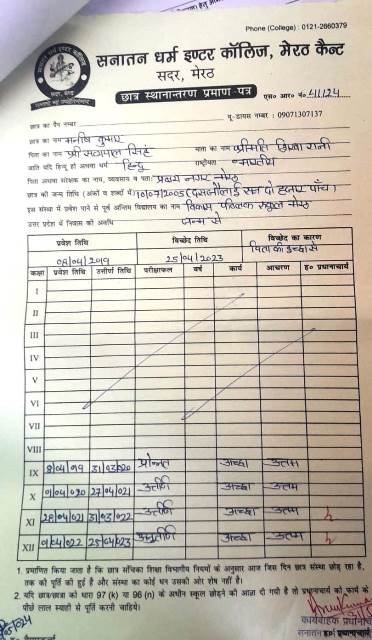 Phone (College) : 0121-2660379
सनातन धर्म इण्टर कॉलिज, मेरठ कैन्ट
सदर, मेरठ
छात्र स्थानान्तरण प्रमाण-पत्र
एस० आर० नं० 411/24
यू-डायस नम्बर : 09071307137
छात्र का पैन नम्बर
छात्र का नाम मनीष कुमार
पिता का नाम श्री सत्यपाल सिंह माता का नाम श्रीमति रानी
जाति यदि हिन्दू हो अथवा धर्म हिन्दू राष्ट्रीयता भारतीय
पिता अथवा संरक्षक का नाम, व्यवसाय व पता: नगर मेरठ
छात्र की जन्म तिथि (अंकों व शब्दों में) 10/07/2005 (दस जौलाई सन दो हजार पाँच)
इस संस्था में प्रवेश पाने से पूर्व अन्तिम विद्यालय का नाम विकास पब्लिक स्कूल मेरठ
उत्तर प्रदेश में निवास की अवधि जन्म से
प्रवेश तिथि विच्छेद तिथि विच्छेद का कारण
08/04/2019 25/04/2023 पिता की इच्छा से
कक्षा प्रवेश तिथि उत्तीर्ण तिथि परीक्षाफल वर्ष कार्य आचरण ह० प्रधानाचार्य
I
II
III
IV
V
VI
VII
VIII
IX 8/04/019 31/03/020 प्रोन्नत अच्छा उत्तम
X 01/04/020 27/04/021 उत्तीर्ण अच्छा उत्तम
XI 28/04/021 31/03/022 उत्तीर्ण अच्छा उत्तम
XII 01/04/022 25/04/023 अनुत्तीर्ण अच्छा उत्तम
1. प्रमाणित किया जाता है कि छात्र पंजिका शिक्षा विभागीय नियमों के अनुसार आज जिस दिन छात्र संस्था छोड़ रहा है,
तक को पूर्ति की हुई है और संस्था का कोई धन उसकी ओर शेष नहीं है।
2. यदि छात्र/छात्रा को धारा 97 (क) या 96 (न) के अधीन स्कूल छोड़ने को आज्ञा दी गयी है तो प्रधानाचार्य को फार्म के
पीछे लाल स्याही से पूर्ति करनी चाहिये।
कार्यवाहक प्रधानाचार्य